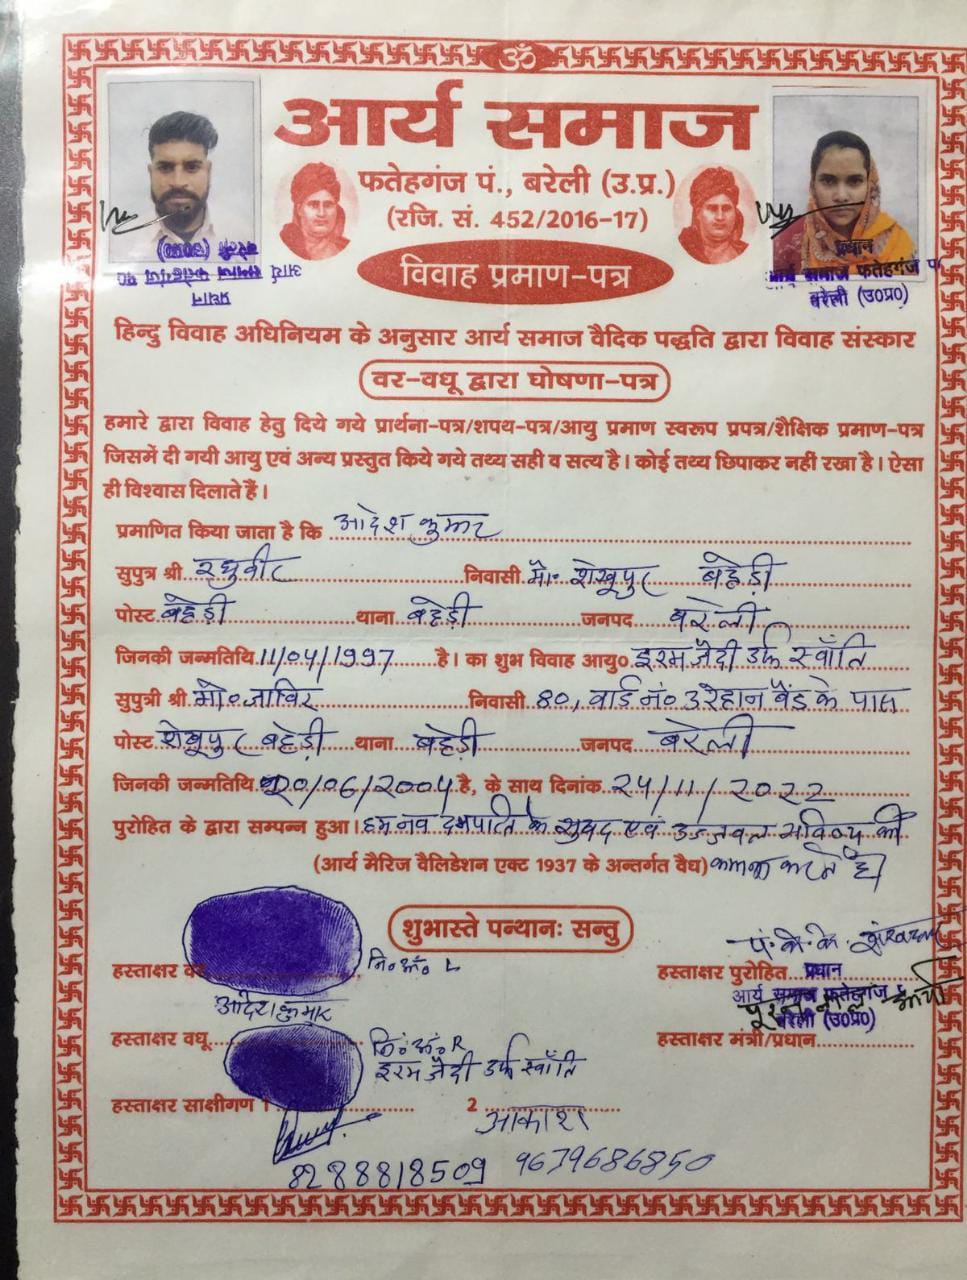 ॐ
आर्य समाज
फतेहगंज पं., बरेली (उ.प्र.)
(रजि. सं. 452/2016-17)
विवाह प्रमाण-पत्र
प्रधान
आर्य समाज फतेहगंज प०
बरेली (उ०प्र०)
प्रधान
आर्य समाज फतेहगंज प
बरेली (उ०प्र०)
हिन्दु विवाह अधिनियम के अनुसार आर्य समाज वैदिक पद्धति द्वारा विवाह संस्कार
वर-वधू द्वारा घोषणा-पत्र
हमारे द्वारा विवाह हेतु दिये गये प्रार्थना-पत्र/शपथ-पत्र/आयु प्रमाण स्वरूप प्रपत्र/शैक्षिक प्रमाण-पत्र
जिसमें दी गयी आयु एवं अन्य प्रस्तुत किये गये तथ्य सही व सत्य है। कोई तथ्य छिपाकर नहीं रखा है। ऐसा
ही विश्वास दिलाते हैं।
प्रमाणित किया जाता है कि आदेश कुमार
सुपुत्र श्री रघुवीर निवासी मो० शेखूपुर बहेड़ी
पोस्ट बहेड़ी थाना बहेड़ी जनपद बरेली
जिनकी जन्मतिथि 11/04/1997 है। का शुभ विवाह आयु० इरम जैदी उर्फ स्वाँति
सुपुत्री श्री मो० जाविर निवासी 80, वार्ड नं० 3 रेहान बैंड के पास
पोस्ट शेखुपुर बहेड़ी थाना बहेड़ी जनपद बरेली
जिनकी जन्मतिथि 20/06/2004 है, के साथ दिनांक 24/11/2022
पुरोहित के द्वारा सम्पन्न हुआ। हम नव दम्पति के सुखद एवं उज्जवल भविष्य की
(आर्य मैरिज वैलिडेशन एक्ट 1937 के अन्तर्गत वैध) कामना करते है।
शुभास्ते पन्थानः सन्तु
हस्ताक्षर वर नि० अं० L
आदेश कुमार
हस्ताक्षर पुरोहित पं० के० के०
प्रधान
आर्य समाज फतेहगंज प
बरेली (उ०प्र०)
हस्ताक्षर वधू नि० अं० R
इरम जैदी उर्फ स्वाँति
हस्ताक्षर मंत्री/प्रधान
हस्ताक्षर साक्षीगण 1 2
आकाश
8288818509 9639686850